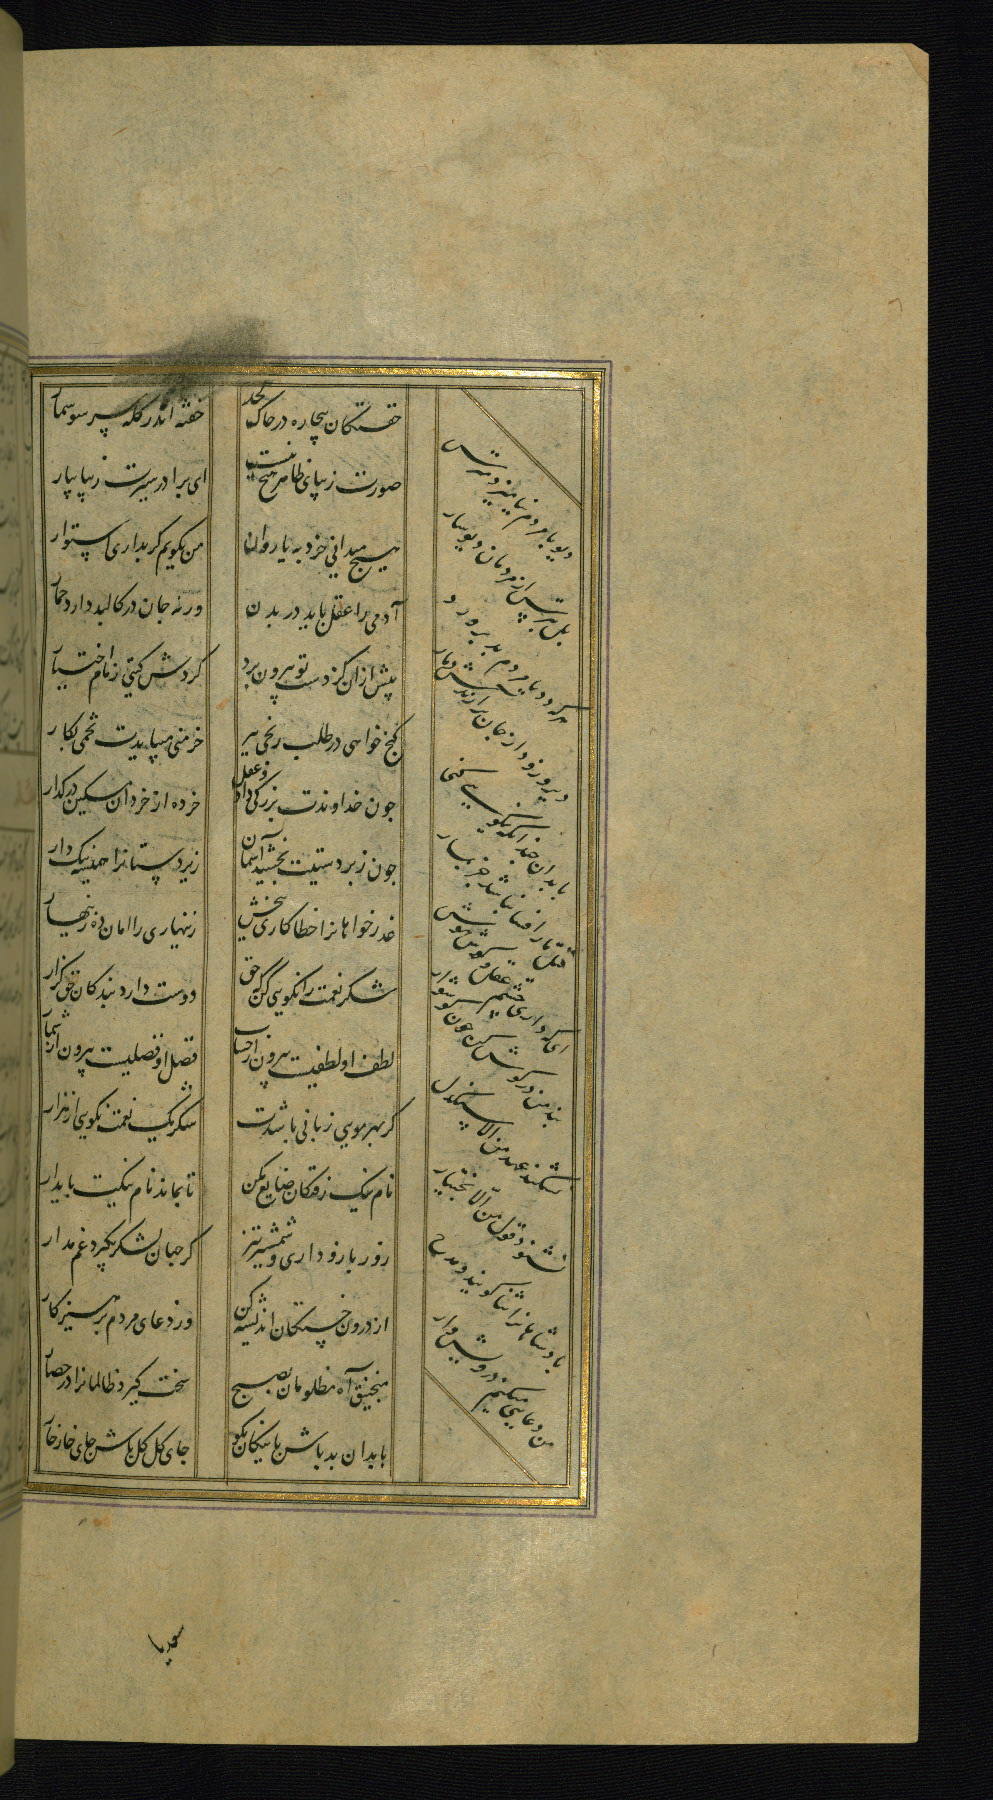 خفتگان بیچاره در خاک لحد خفته اندر کله سر سوسمار
صورت زیبای ظاهر هیچ نیست ای برادر سیرت زیبا بیار
هیچ میدانی خرد به یا روان من بگویم گر بداری استوار
آدمی را عقل باید در بدن ورنه جان در کالبد دارد حمار
پیش از آن کز دست تو بیرون برد گردش گیتی زمام اختیار
گنج خواهی در طلب رنجی ببر خرمنی میبایدت تخمی بکار
چون خداوندت بزرگی داد و عقل خرده از خردان مسکین درگذار
چون زبردستیت بخشید آسمان زیردستانرا همیشه نیک دار
عذرخواهانرا خطاکاری ببخش زنهاری را امان ده زینهار
شکر نعمت را نکویی کن که حق دوست دارد بندگان حق گزار
لطف او لطفیست بیرون از حساب فضل او فضلیست بیرون از شمار
گر بهر مویی زبانی باشدت شکر یک نعمت نگویی از هزار
نام نیک رفتگان ضایع مکن تا بماند نام نیکت پایدار
زور بازو داری و شمشیر تیز گر جهان لشکر بگیرد غم مدار
از درون خستگان اندیشه کن وز دعای مردم پرهیزکار
منجنیق آه مظلومان بصبح سخت گیرد ظالمانرا در حصار
با بدان بد باش با نیکان نکو جای گل گل باش جای خار خار
دیو با مردم نیامیزد مترس
بل بترس از مردمان دیوسار
هر که دد یا مردم بد پرورد
دیر و زود از جان برآرندش دمار
با بدان چندانکه نیکویی کنی
قتل مار افسا نباشد جز بمار
ای که داری چشم عقل و گوش هوش
پند من در گوش کن چون گوشوار
نشکند عهد من الا سنگدل
نشنود قول من الا بختیار
پادشاهانرا ثنا گویند و مدح
من دعایی میکنم درویش وار
سعدیا